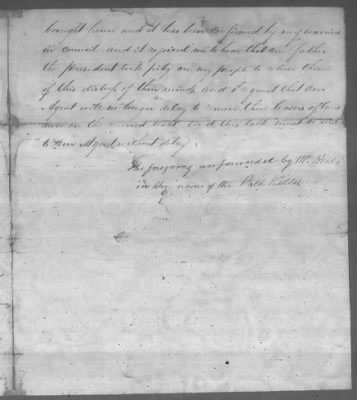 brought home and it has been confirmed by my warriors
in council and it rejoiced me to hear that our father
the President took pity on my people to relieve them
of this distress of their minds and I request that our
Agent will no longer delay to remove these
on the and this talk must be sent
to our Agent without delay.
The foregoing was forwarded by Mr. Hicks
in the name of the Path Killer